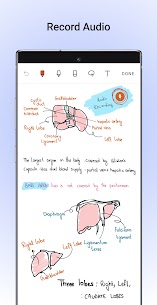 Record Audio
T DONE
Gallbladder
Cystic duct
Audio Recording
Common bile duct
Hepatic artery
Portal vein
Right Lobe
Left Lobe
The largest organ in the body covered by Glisson's
capsule. Has dual blood supply: portal vein + hepatic artery
is not covered by the peritoneum
Diaphragm
Falciform ligament
Right Lobe
Left Lobe
Ligamentum
Gallbladder
Three lobes: Right, Left,
CAUDATE LOBES